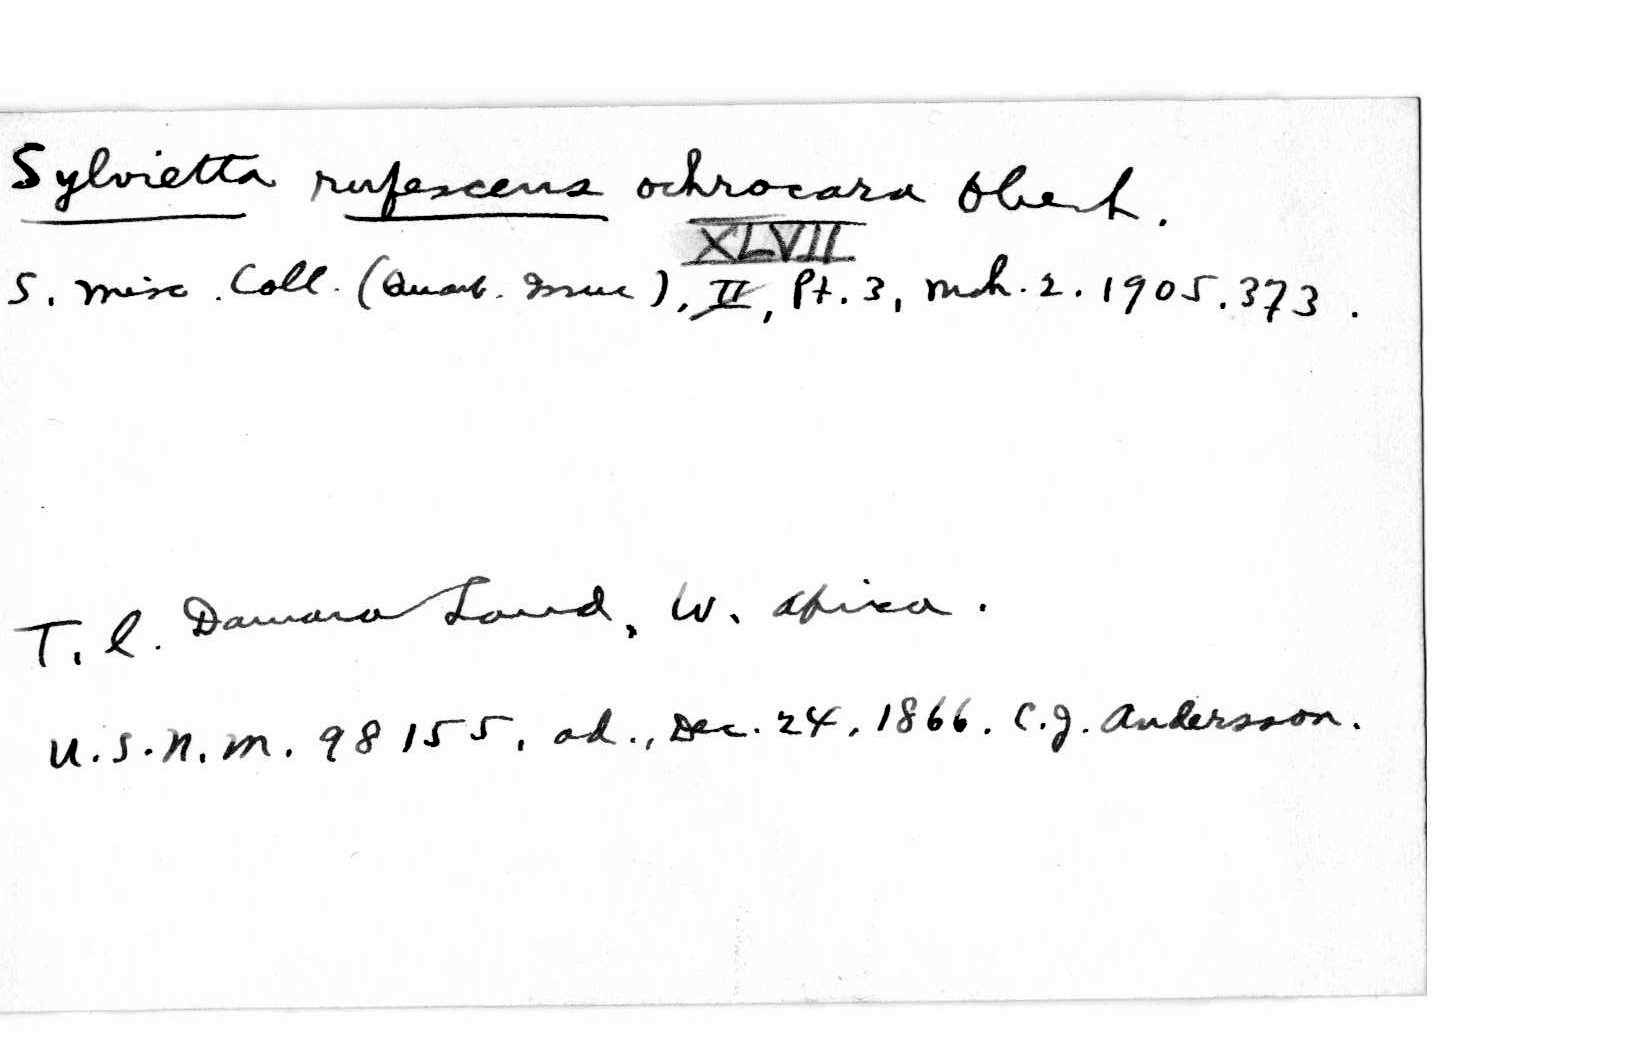 Sylvietta rufescens ochrocara Oberh.
XLVII
S. Misc. Coll. (Quart. Issue), II, Pt. 3, Mch. 2. 1905. 373.
T. l. Damara Land, W. Africa.
U.S.N.M. 98155, ad., Dec. 24, 1866. C.J. Andersson.